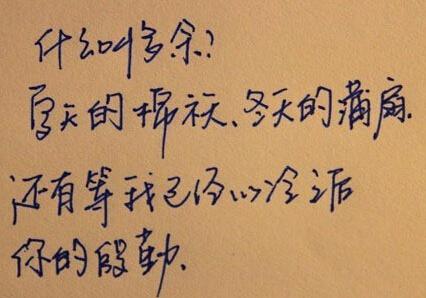 什么叫多余？
夏天的棉袄、冬天的蒲扇.
还有等我已经心冷之后
你的殷勤.